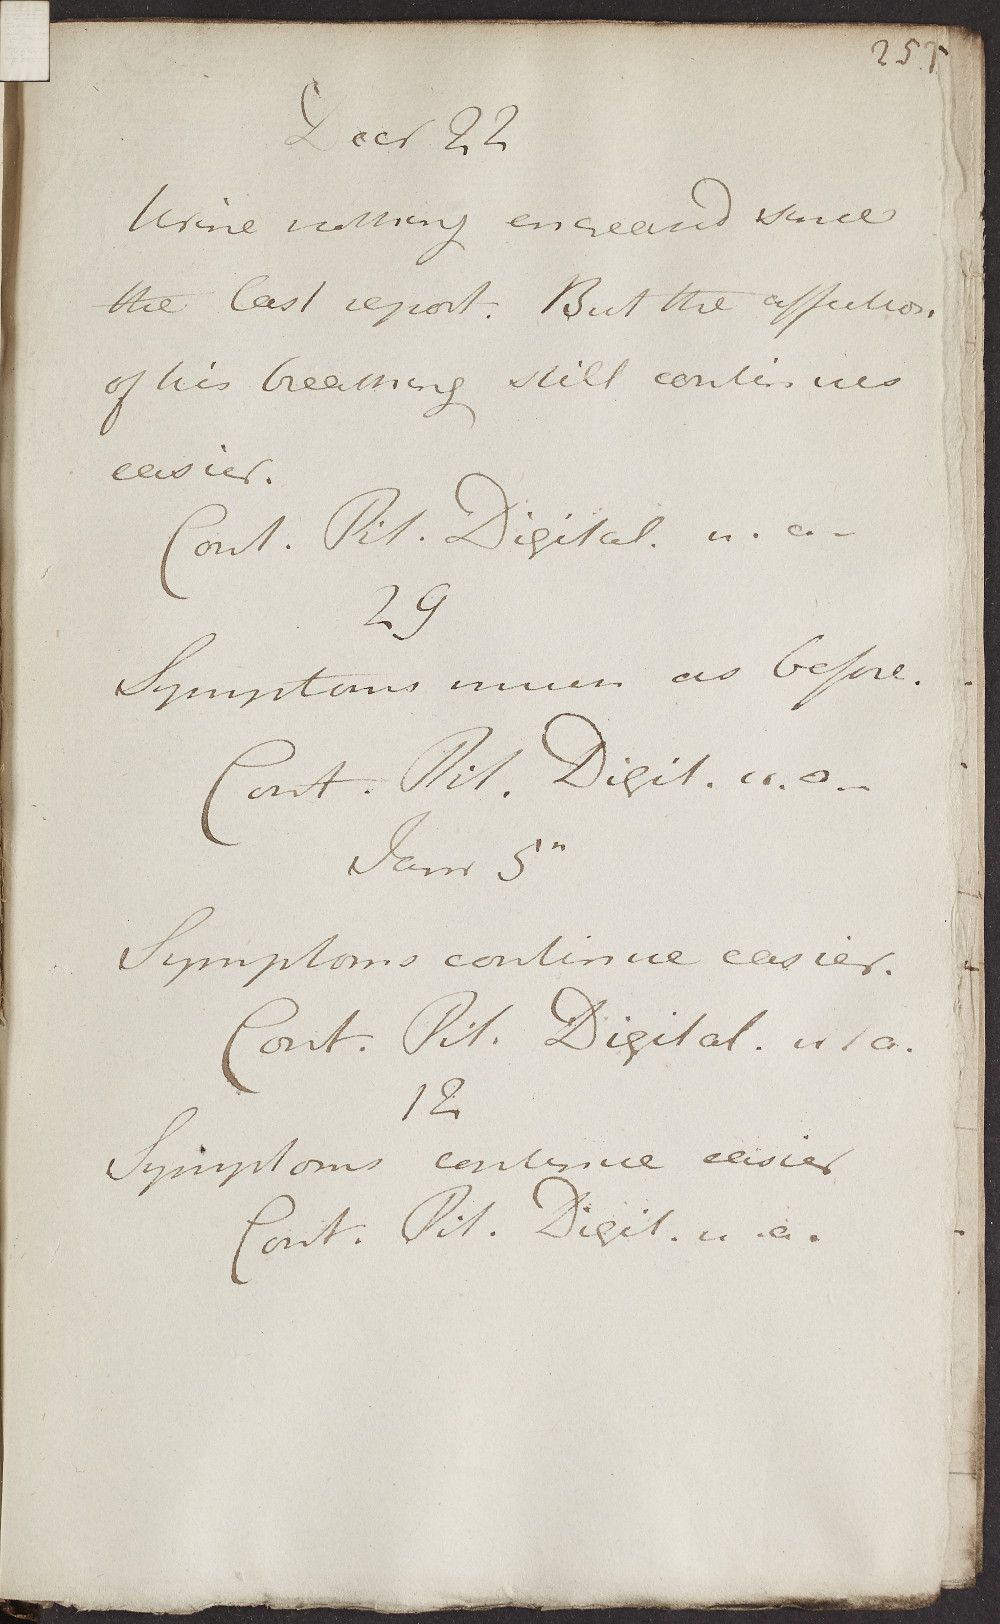 255
Decr 22
Urine nothing encreased since
the last report. But the affection
of his breathing still continues
easier.
Cont. Pil. Digital. u. a.
29
Symptoms much as before.
Cont. Pil. Digit. u. a.
Janr 5"
Symptoms continue easier.
Cont. Pil. Digital. u. a.
12
Symptoms continue easier
Cont. Pil. Digit. u. a.